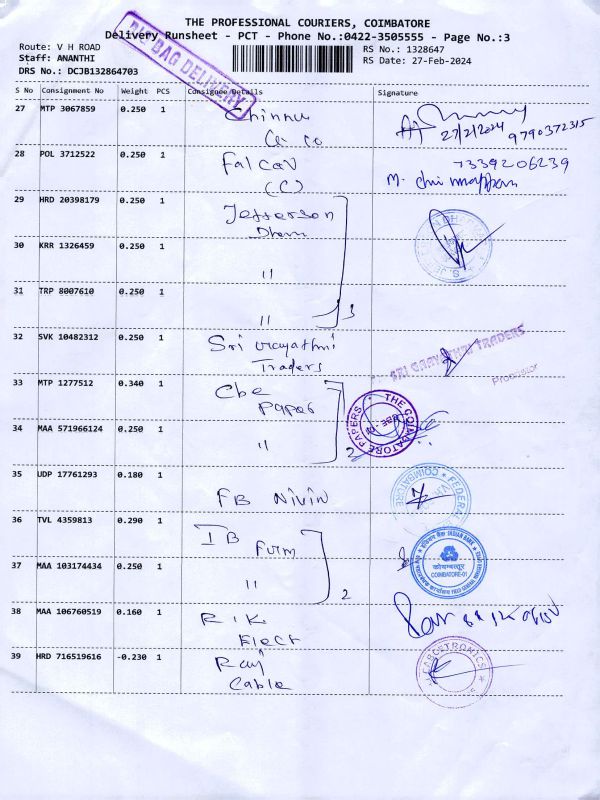 THE PROFESSIONAL COURIERS, COIMBATORE
Delivery Runsheet - PCT - Phone No.:0422-3505555 - Page No.:3
Route: V H ROAD
RS No.: 1328647
Staff: ANANTHI
RS Date: 27-Feb-2024
DRS No.: DCJB132864703
BAG DELIVERY
S No Consignment No Weight PCS Consignee Details Signature
27 MTP 3067859 0.250 1 Chinnu
& Co
27/2/2024 9790372315
28 POL 3712522 0.250 1 Falcon
(CC)
7339206239
M. Chinnappan
29 HRD 20398179 0.250 1 Jefferson
30 KRR 1326459 0.250 1 "
31 TRP 8007610 0.250 1 "
3
32 SVK 10482312 0.250 1 Sri
Traders
SRI GAAYATHRI TRADERS
Proprietor
33 MTP 1277512 0.340 1 Cbe
Paper
THE COIMBATORE PAPERS
CBE - 01
34 MAA 571966124 0.250 1 "
2
35 UDP 17761293 0.180 1 FB Nivin
FEDERAL
COIMBATORE
36 TVL 4359813 0.290 1 IB
Furm
INDIAN BANK
कोयम्बत्तूर
COIMBATORE-01
37 MAA 103174434 0.250 1 "
2
38 MAA 106760519 0.160 1 R.K
Elect
39 HRD 716519616 -0.230 1 Raj
Cable